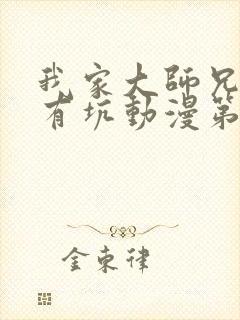 我家大師兄
有坑動漫第
金東律